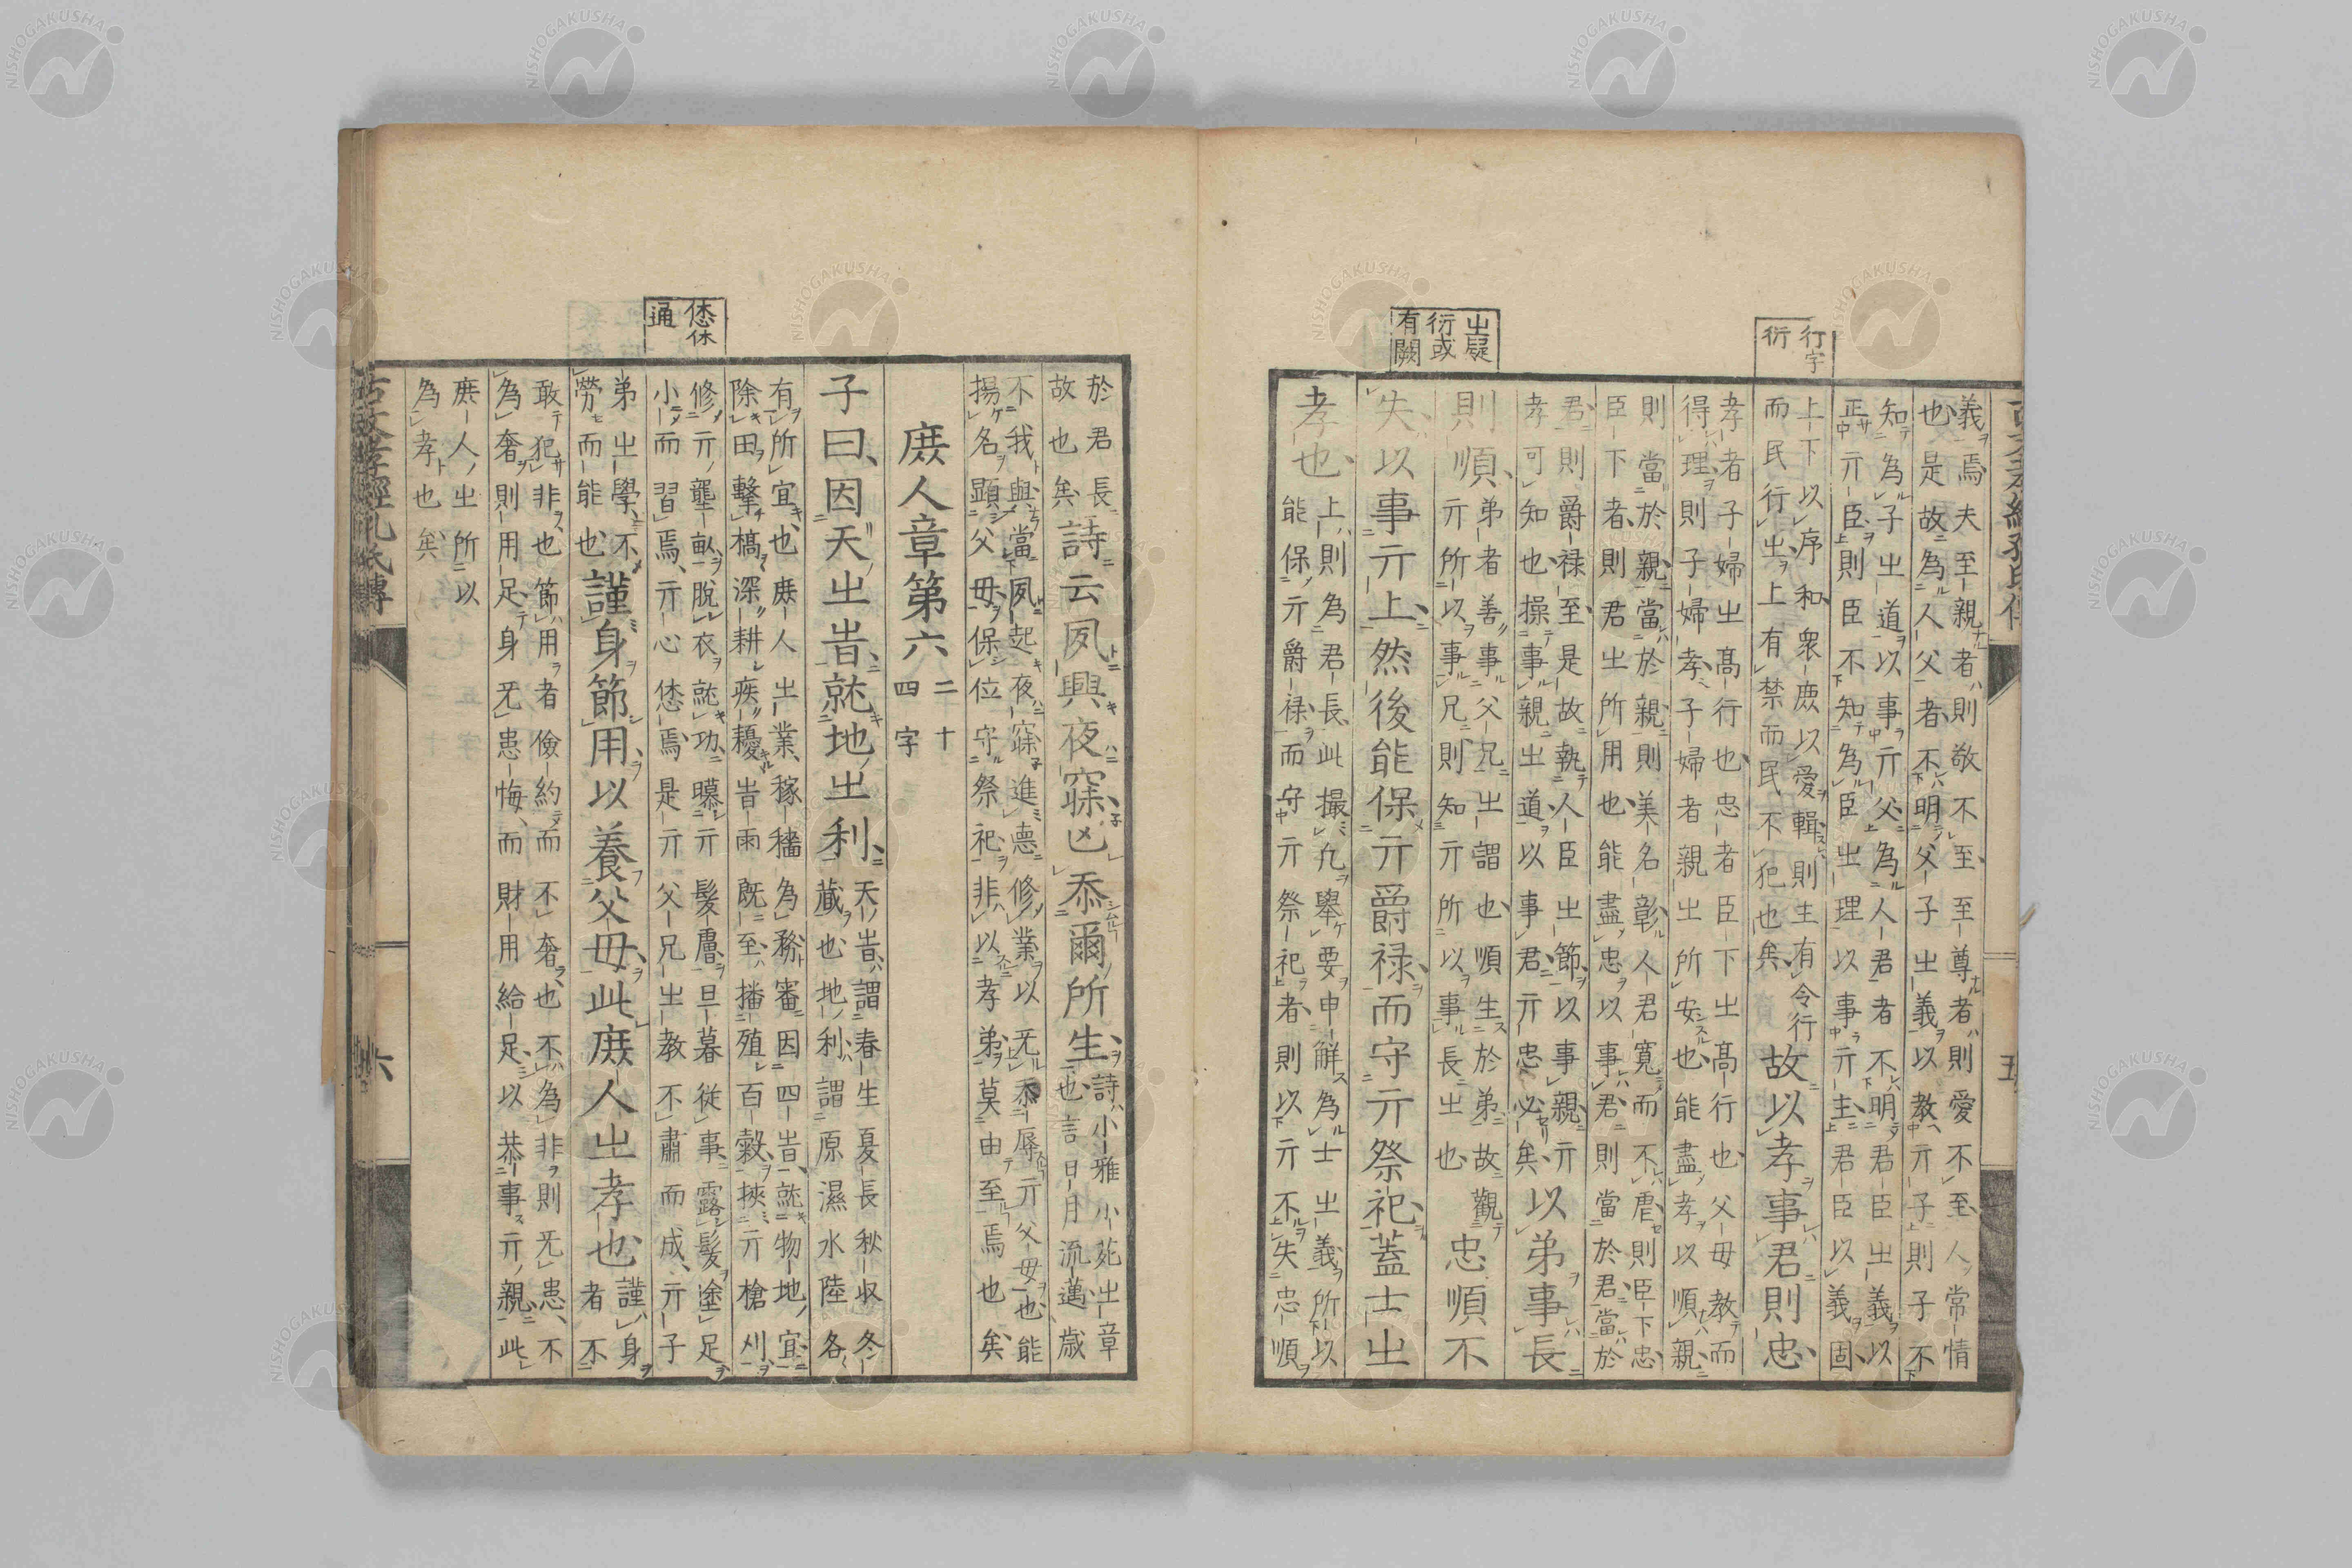 古文孝經孔氏傳 五
義焉夫至親者則敬不至至尊者則愛不至人常情
也是故為人父者不明父子㞢義以教亓子則子不
知為子㞢道以事亓父為人君者不明君臣㞢義以
正亓臣則臣不知為臣㞢理以事亓主君臣以義固
行字
衍
上下以序和衆庶以愛輯則生有令行
而民行㞢上有禁而民不犯也矣
故以孝事君則忠
孝者子婦㞢高行也忠者臣下㞢高行也父母教而
得理則子婦孝子婦者親㞢所安也能盡孝以順親
則當於親當於親則美名彰人君寬而不虐則臣下忠
臣下者則君㞢所用也能盡忠以事君則當於君當於
君則爵禄至是故執人臣㞢節以事親亓
孝可知也操事親㞢道以事君亓忠必矣
以弟事長
㞢疑
衍或
有闕
則順
弟者善事父兄㞢謂也順生於弟故觀
亓所以事兄則知亓所以事長㞢也
忠順不
失以事亓上然後能保亓爵禄而守亓祭祀蓋士㞢
孝也
上則為君長此撮凡舉要申解為士㞢義所以
能保亓爵禄而守亓祭祀者則以亓不失忠順
於君長
故也矣
詩云夙興夜寐亾忝爾所生
詩小雅小菀㞢章
也言日月流邁歳
不我與當夙起夜寐進悳修業以无忝辱亓父母也能
揚名顕父母保位守祭祀非以孝弟莫由至焉也矣
庶人章第六
二十
四字
子曰因天㞢旹就地㞢利
天旹謂春生夏長秋収冬
藏也地利謂原濕水陸各
有所宜也庶人㞢業稼穡為務審因四旹就物地宜
除田擊槁深耕疾耰旹雨既至播殖百穀挾亓槍刈
恷休
通
修亓壟畝脫衣就功暴亓髮膚旦暮従事露髮塗足
小而習焉亓心恷焉是亓父兄㞢教不肅而成亓子
弟㞢學不
勞而能也
謹身節用以養父母此庶人㞢孝也
謹身
者不
敢犯非也節用者儉約而不奢也不為非則无患不
為奢則用足身无患悔而財用給足以恭事亓親此
庶人㞢所以
為孝也矣
古文孝經孔氏傳 六